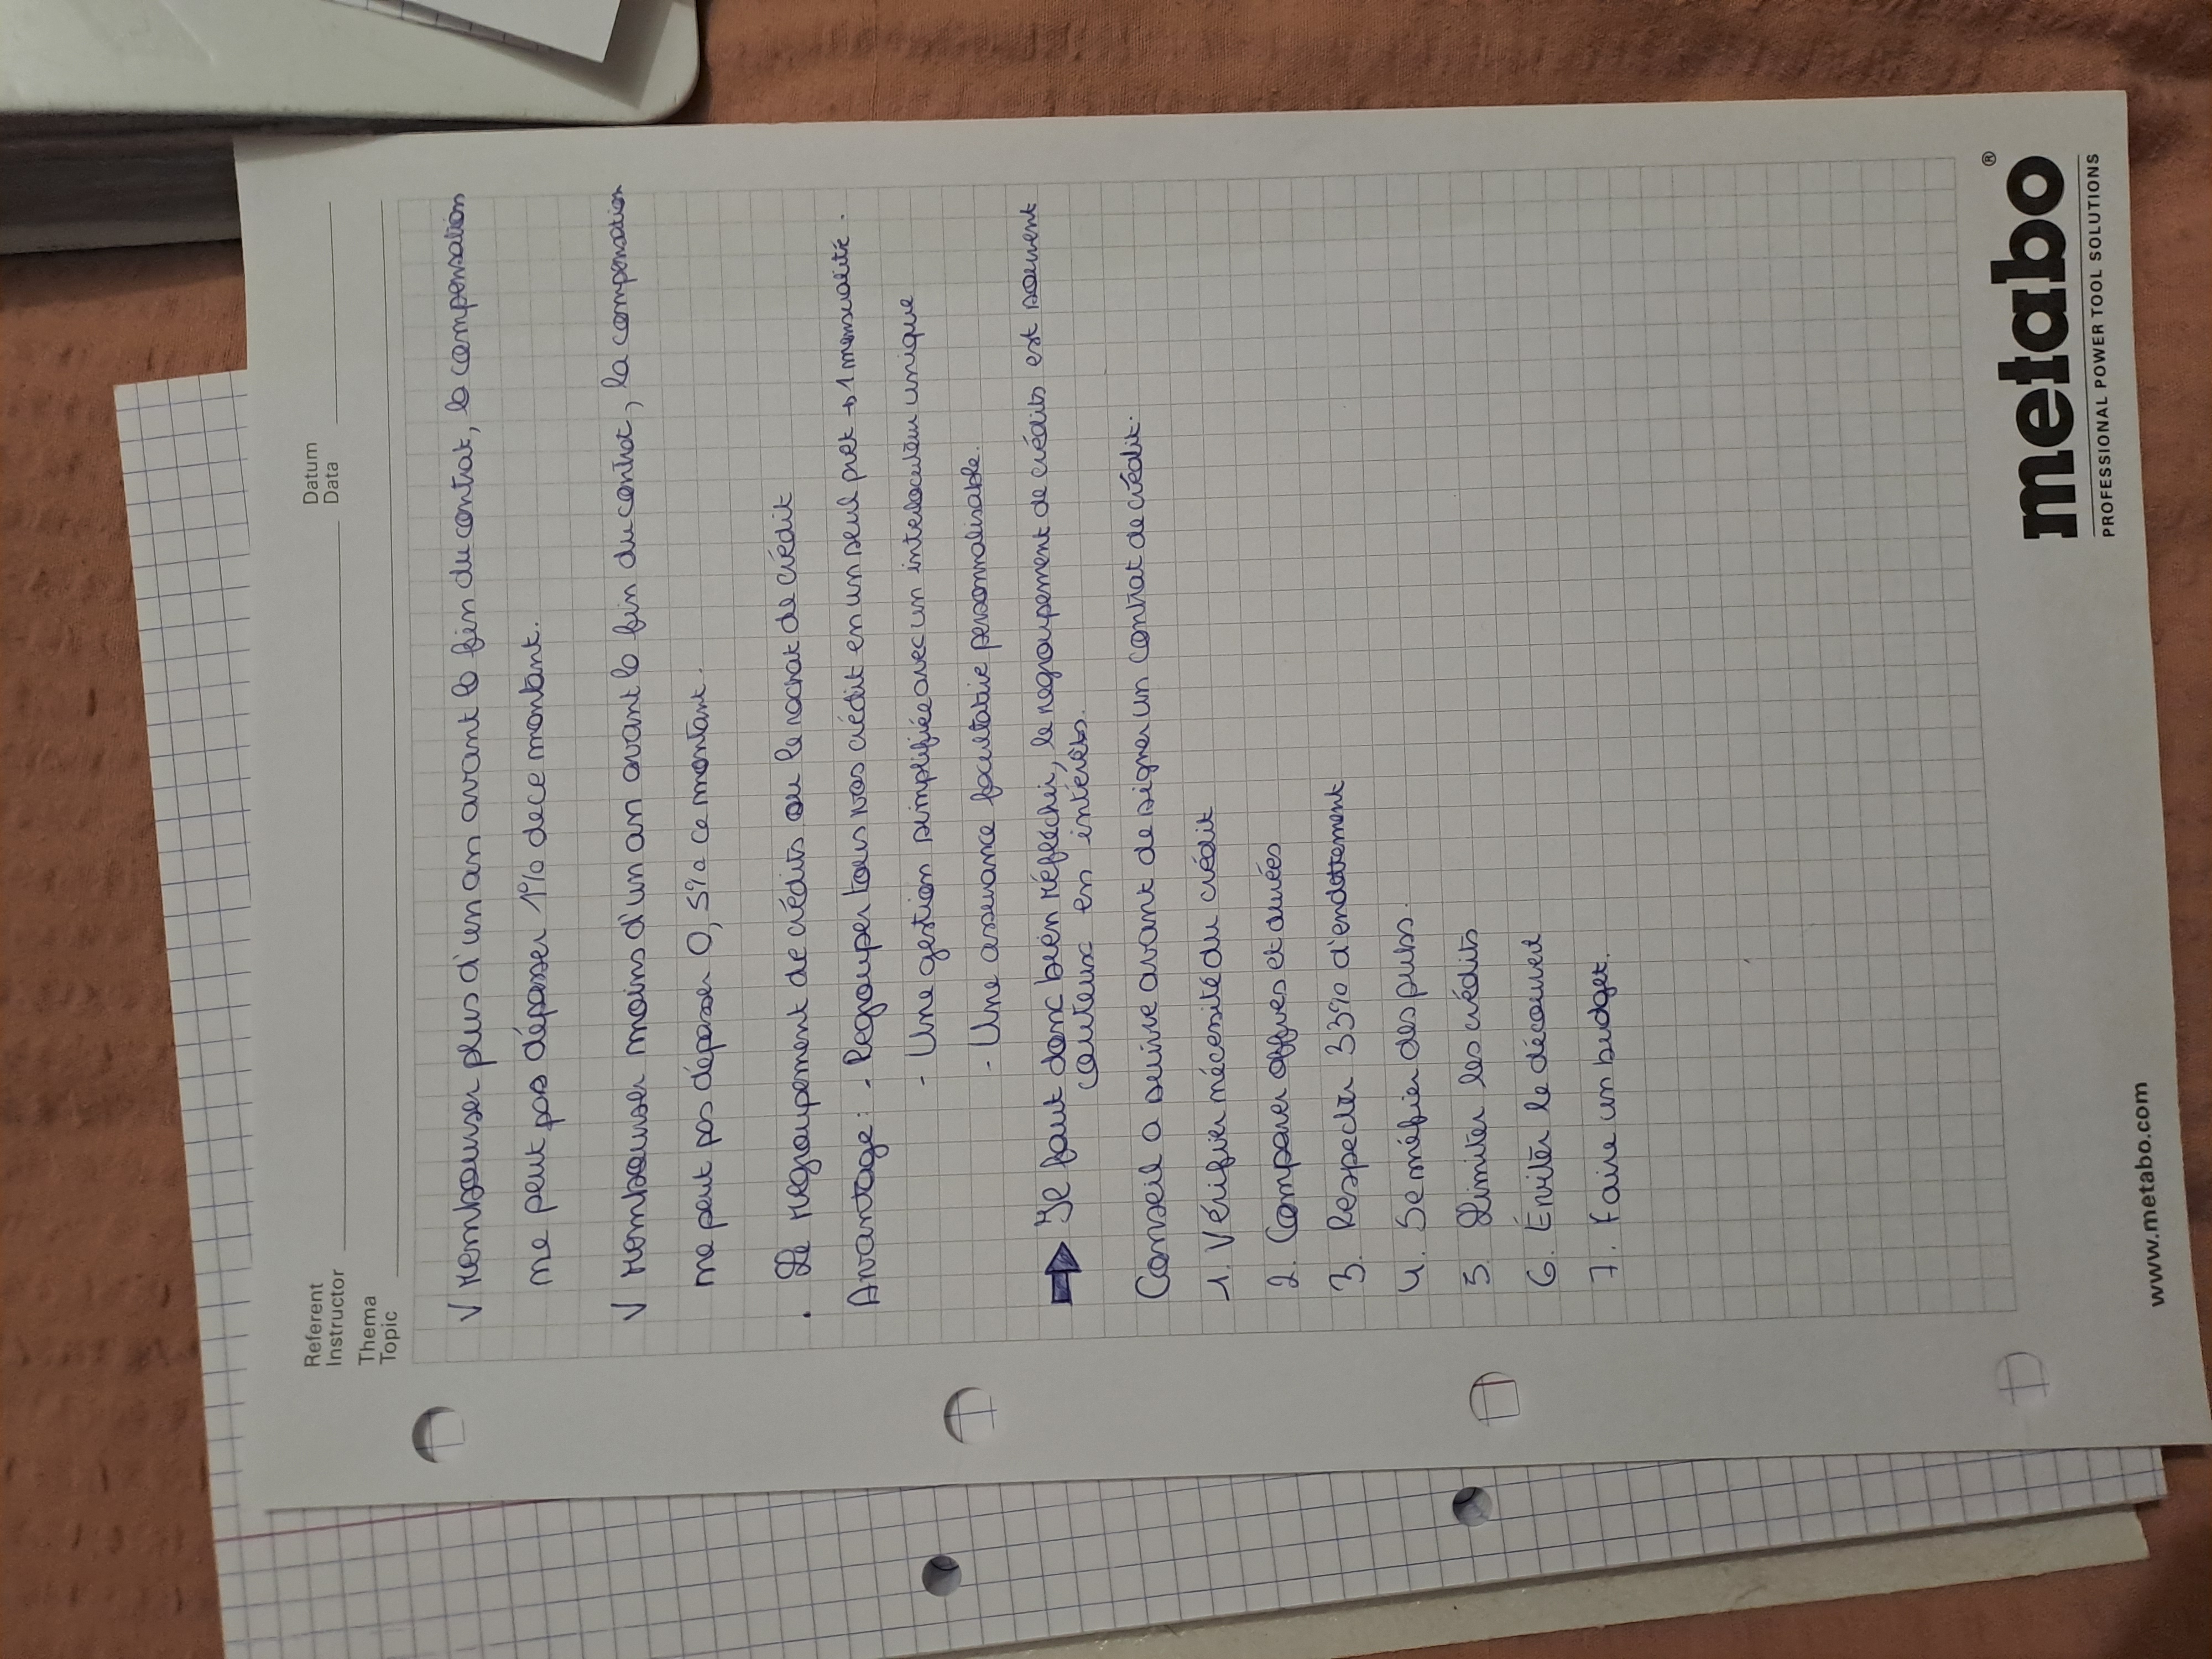 Referent
Instructor
Datum
Data
Thema
Topic
V rembourser plus d'un an avant la fin du contrat, la compensation
ne peut pas dépasser 1% de ce montant.
V rembourser moins d'un an avant la fin du contrat, la compensation
ne peut pas dépasser 0,5% ce montant.
. Le regroupement de crédits ou le rachat de crédit
Avantage : - Regrouper tous vos crédit en un seul pret → 1 mensualité.
- Une gestion simplifiée avec un interlocuteur unique
- Une assurance facultative personnalisable.
➡ Il faut donc bien réfléchir, le regroupement de crédits est souvent
couteux en intérêts.
Conseil a suivre avant de signer un contrat de crédit.
1. Vérifier nécessité du crédit
2. Comparer offres et durées
3. Respecter 33% d'endettement
4. Se méfier des pubs.
5. Limiter les crédits
6. Éviter le découvert
7. Faire un budget.
www.metabo.com
metabo®
PROFESSIONAL POWER TOOL SOLUTIONS